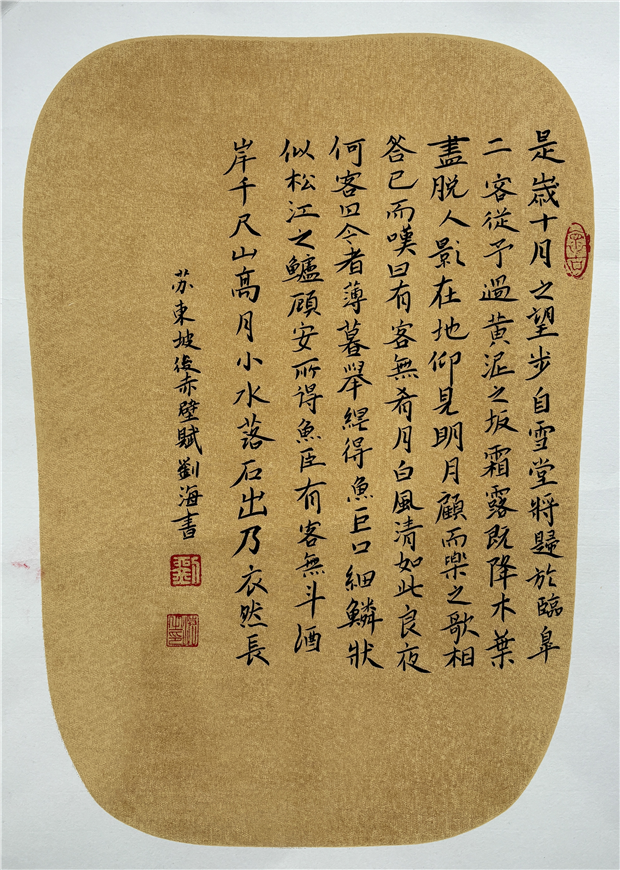 是歲十月之望步自雪堂將歸於臨皋
二客從予過黄泥之坂霜露既降木葉
盡脱人影在地仰見明月顧而樂之歌相
答已而嘆曰有客無肴月白風清如此良夜
何客曰今者薄暮舉網得魚巨口細鱗狀
似松江之鱸顧安所得魚臣有客無斗酒
岸千尺山高月小水落石出乃衣然長
苏東坡後赤壁賦劉海書
劉